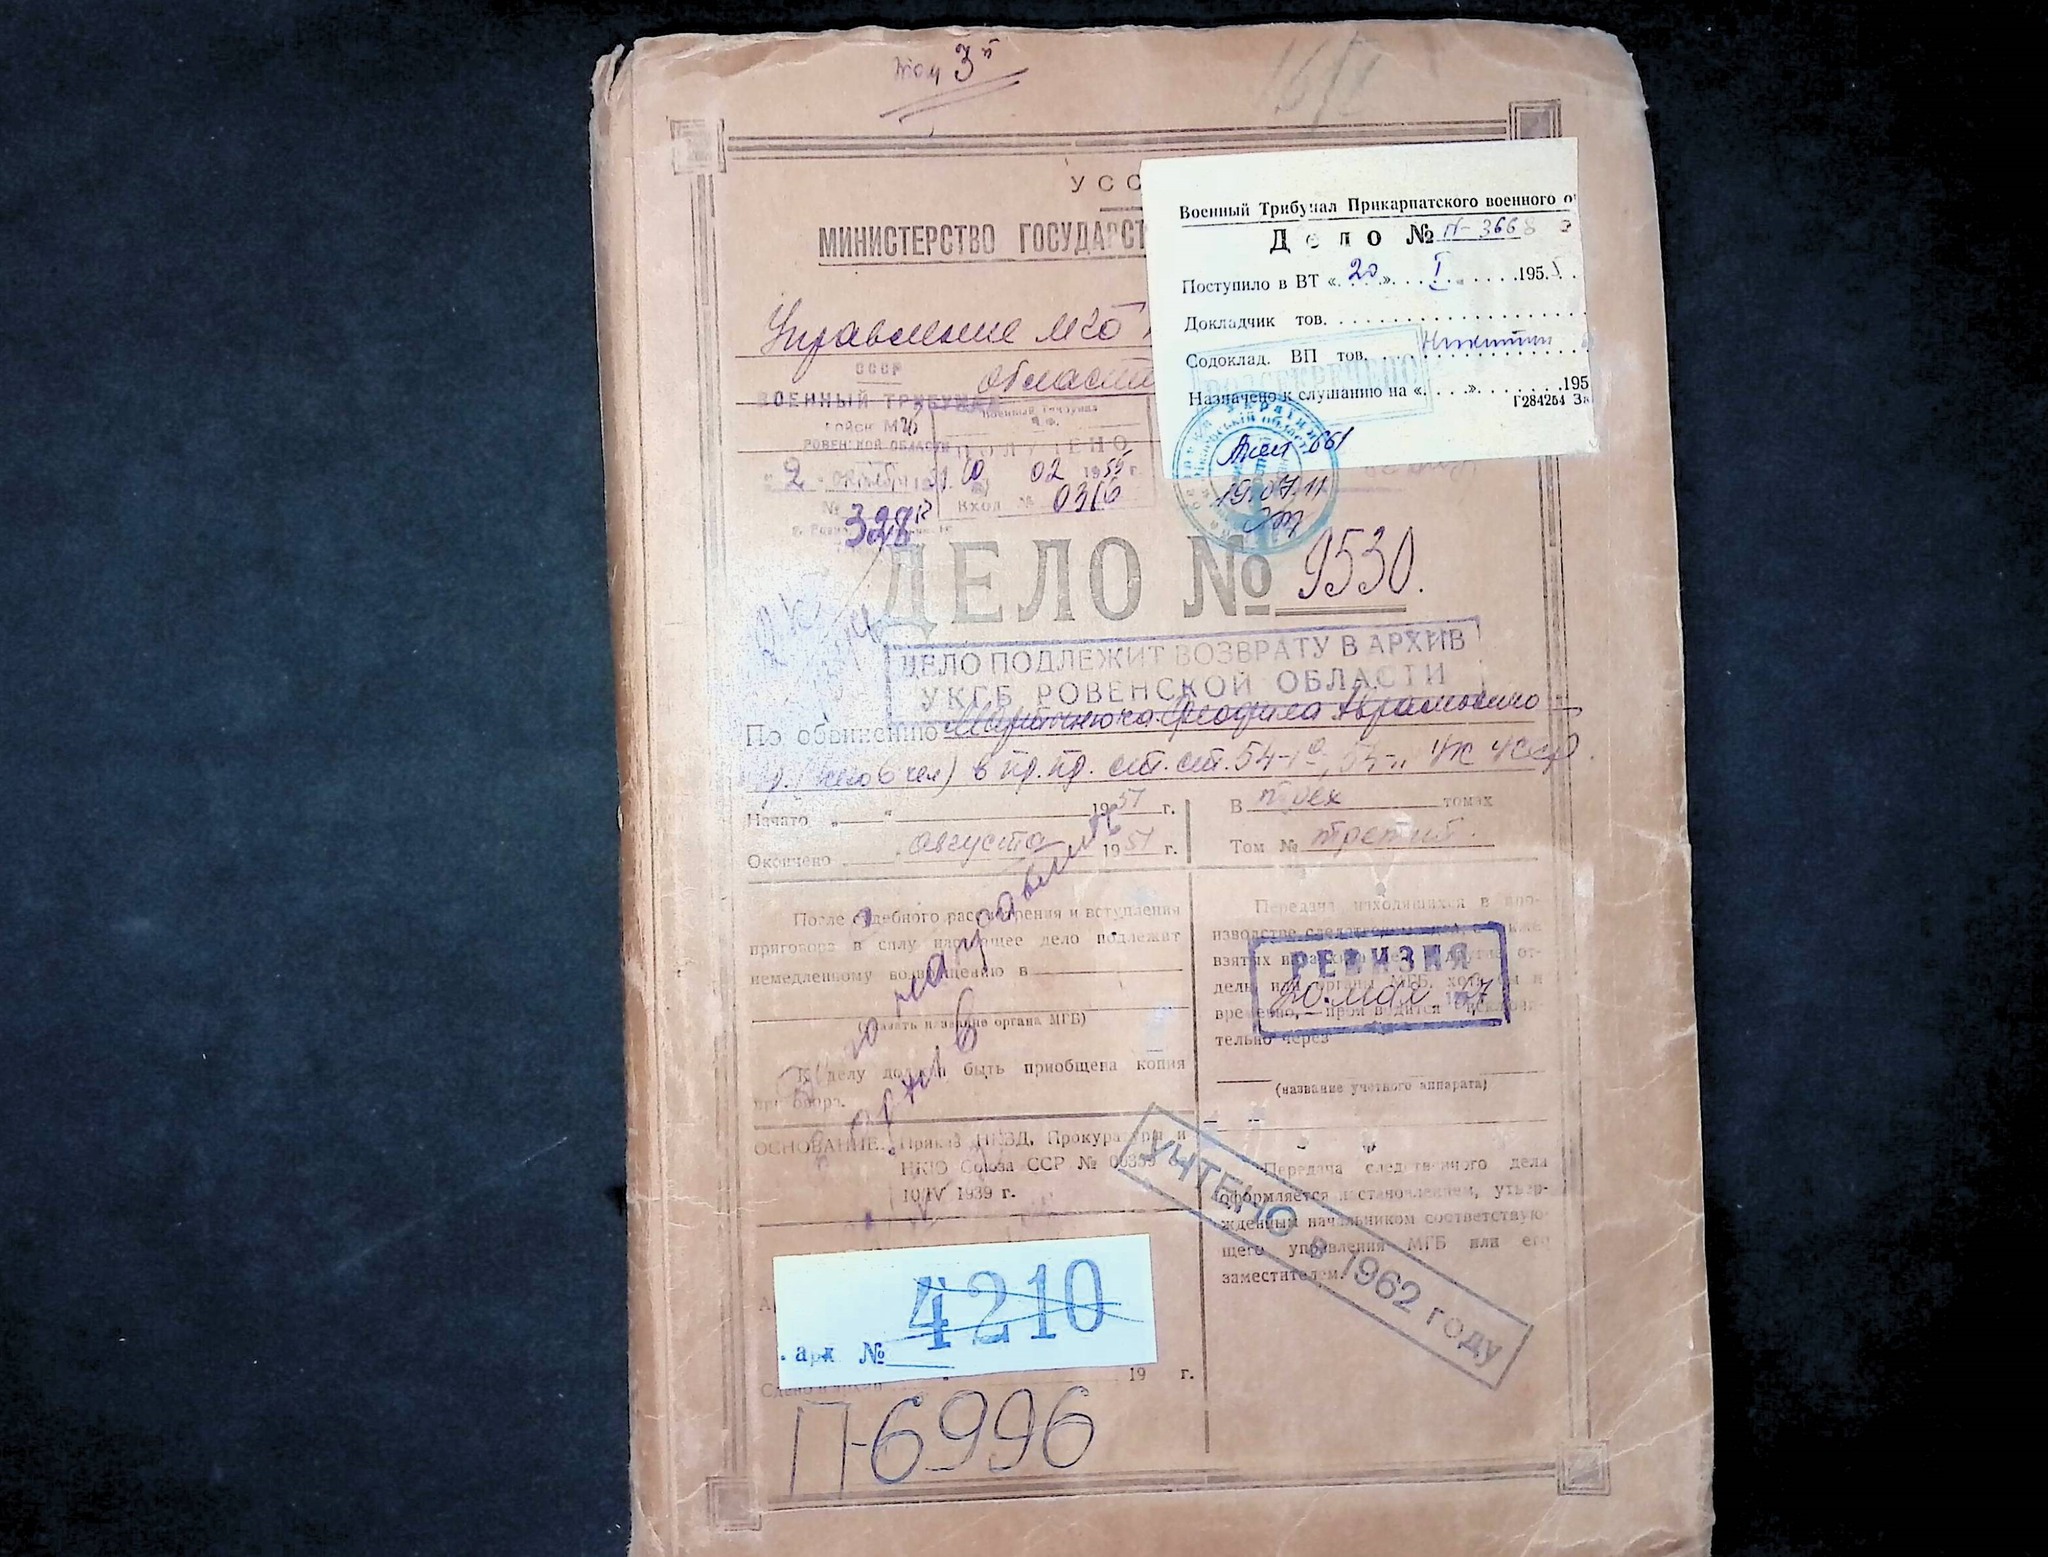 том 3й
УСС
МИНИСТЕРСТВО ГОСУДАРСТ
Управление МГБ
области
Военный Трибунал Прикарпатского военного о
Дело № П-3668
Поступило в ВТ «20» I 195
Докладчик тов.
Содоклад. ВП тов. Никитин
Назначено к слушанию на « » 195
Г284254 За
Аркл 661
19.07.11
СССР
ВОЕННЫЙ ТРИБУНАЛ
ВОЙСК МГБ
РОВЕНСКОЙ ОБЛАСТИ
"2" октября 1951
№ 328
Военный трибунал
ПОЛУЧЕНО
02 1955 г.
Вход № 0316
ДЕЛО № 9530.
ДЕЛО ПОДЛЕЖИТ ВОЗВРАТУ В АРХИВ
УКГБ РОВЕНСКОЙ ОБЛАСТИ
По обвинению Мартынюка Феодила Аврамовича
др. (всего 6 чел) в пр. пр. ст. ст. 54-1а, 54-11 УК УССР.
Начато „ “ 1951 г.
Окончено августа 1951 г.
В трех томах
Том № третий.
После судебного рассмотрения и вступления
приговора в силу настоящее дело подлежит
немедленному возвращению в
(указать название органа МГБ)
К делу должна быть приобщена копия
приговора.
ОСНОВАНИЕ: Приказ НКВД, Прокуратуры и
НКЮ Союза ССР № 00359
10/IV 1939 г.
Передача находящихся в про-
изводстве следственных дел, а также
взятых из архива дел в другие от-
делы или органы МГБ, хотя бы и
временно, — производится исключи-
тельно через
(название учетного аппарата)
Передача следственного дела
оформляется постановлением, утвер-
жденным начальником соответствую-
щего управления МГБ или его
заместителем.
РЕВИЗИЯ
мая
УЧТЕНО в 1962 году
арх. № 4210
Сдано в архив 19 г.
П-6996